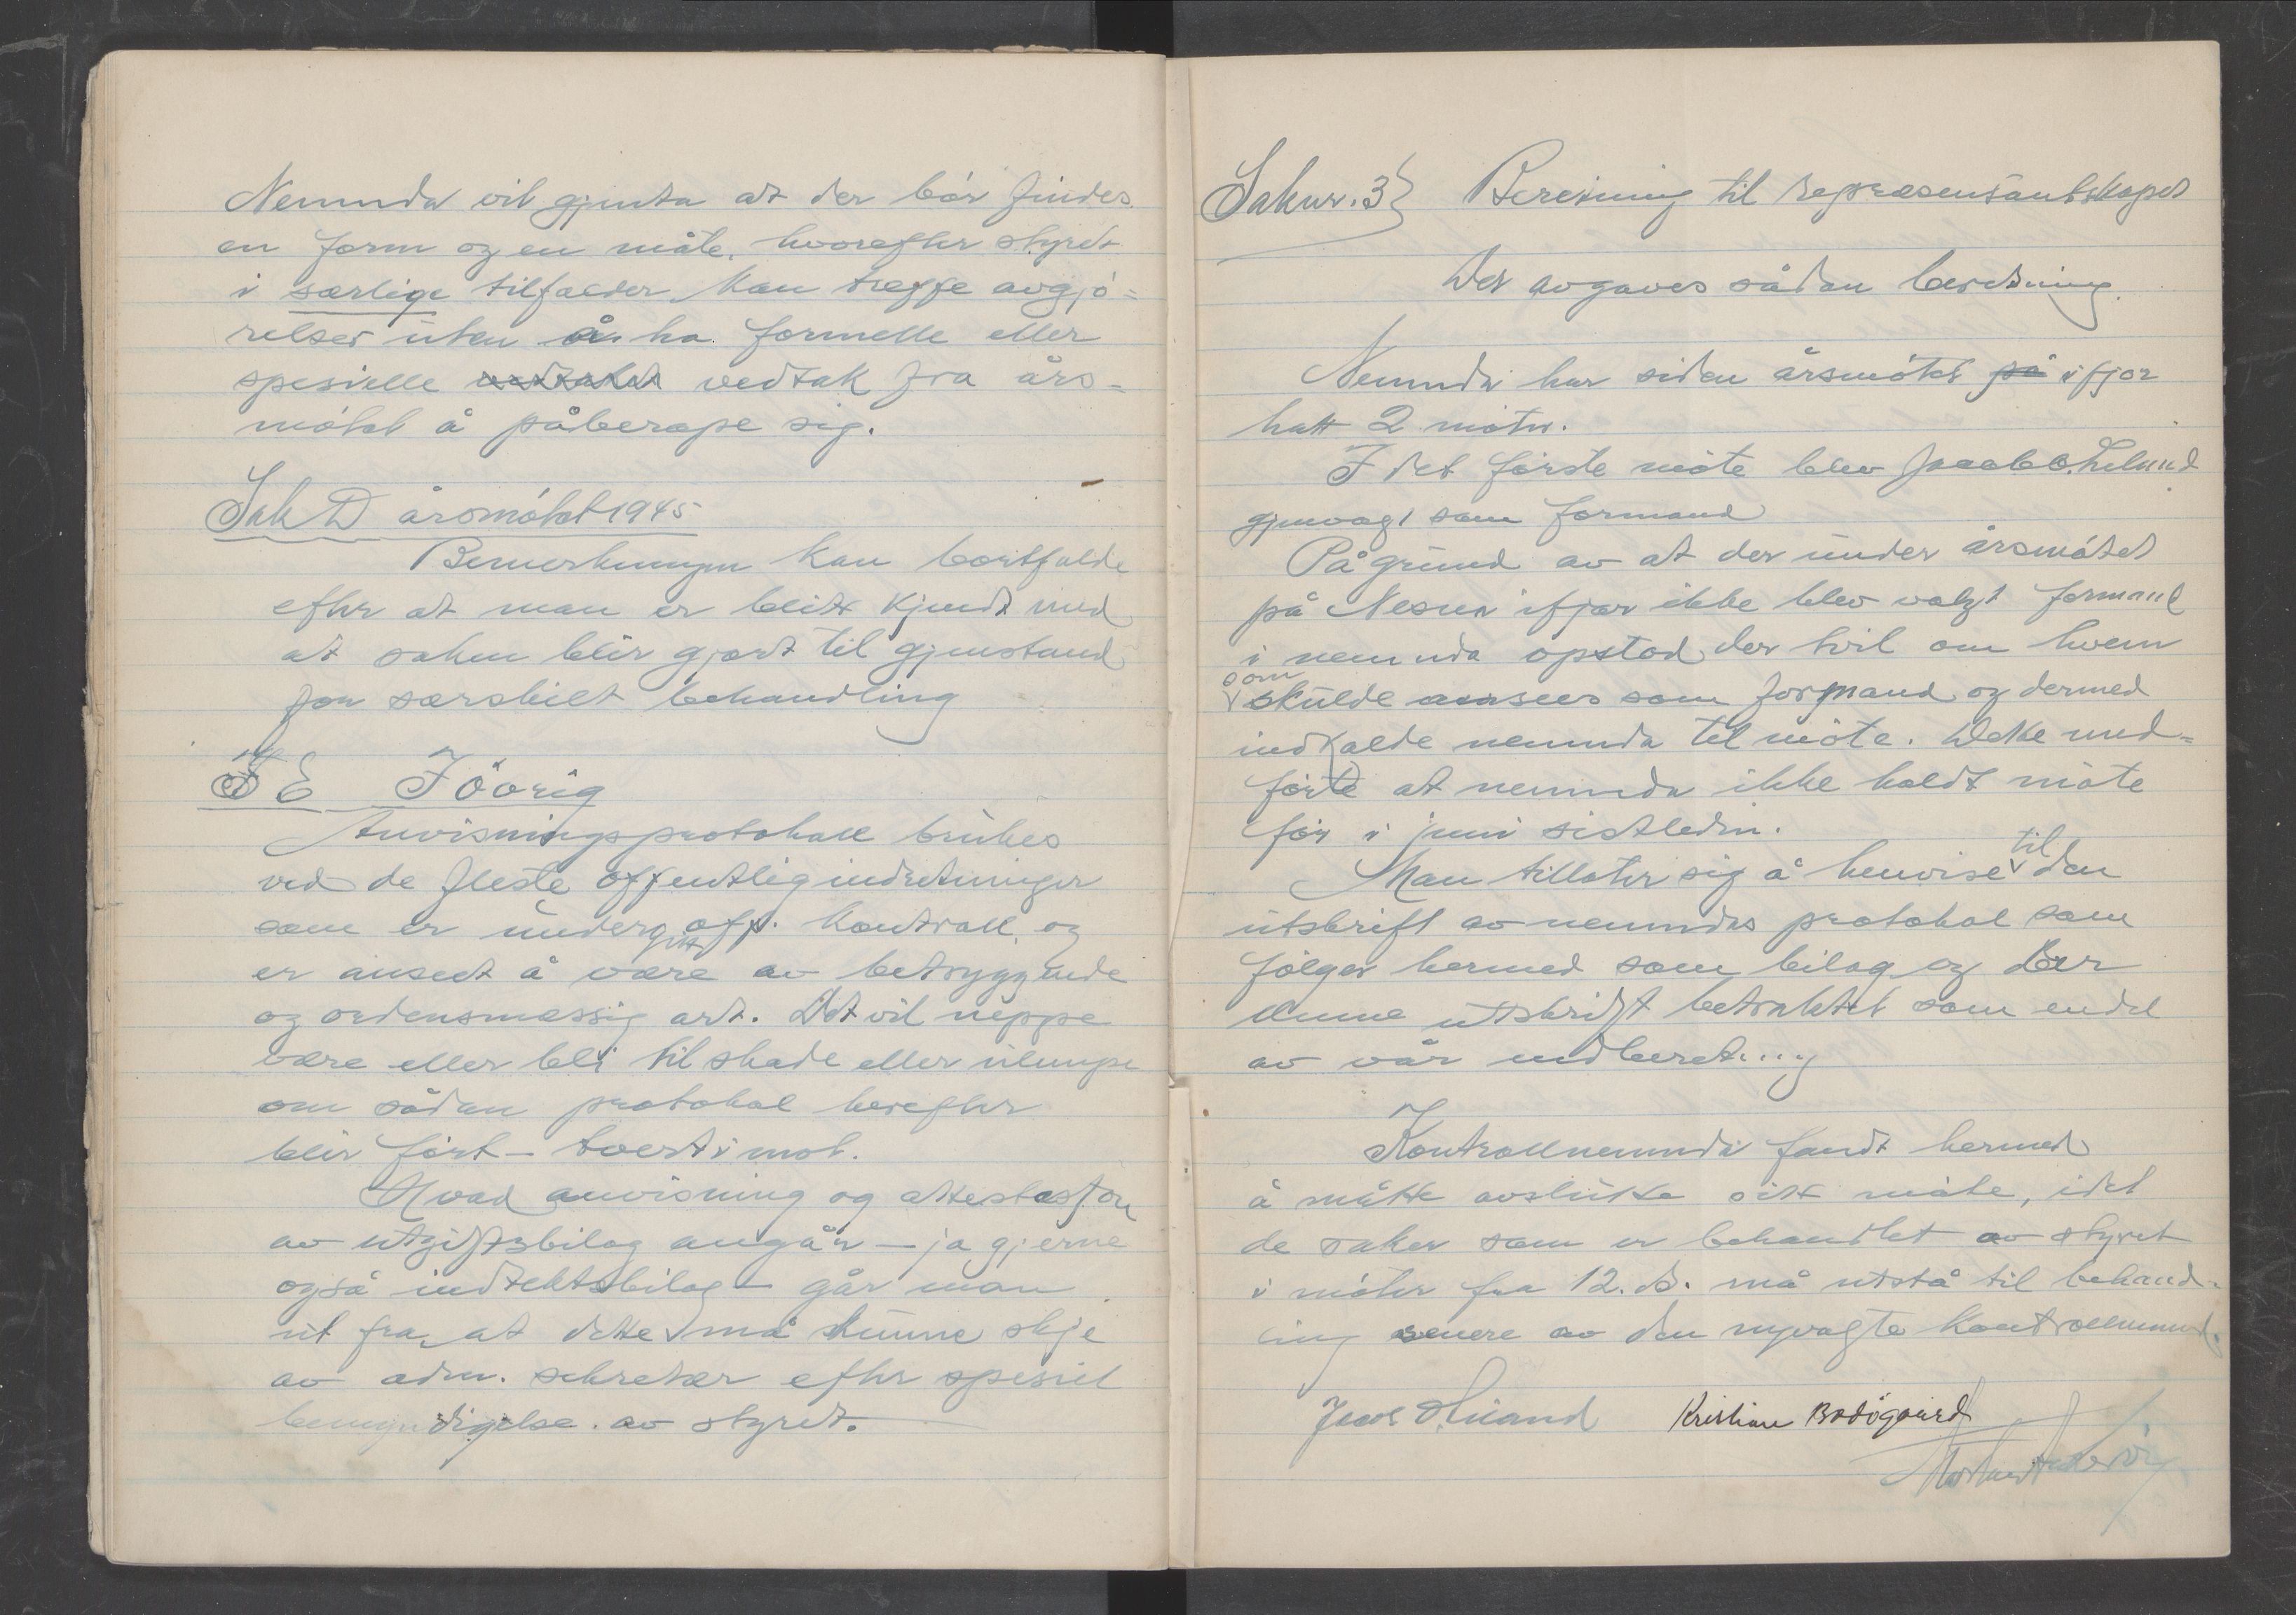 Nemnda vil gjenta at der bör findes
en form og en måte, hvorefter styret
i særlige tilfælder kan træffe avgjö-
relser uten å ha formelle eller
spesielle vedtak fra års-
mötet å påberope sig.
Sak D årsmötet 1945
Bemerkningen kan bortfalde
efter at man er blitt kjendt med
at saken blir gjort til gjenstand
for særskilt behandling
E Iövrig
Anvisningsprotokoll brukes
ved de fleste offentlig indretninger
som er undergitt off. kontroll og
er anseet å være av betryggende
og ordensmæssig art. Det vil neppe
være eller bli til skade eller ulempe
om sådan protokol herefter
blir fört - tvertimot.
Hvad anvisning og attestasjon
av utgiftsbilag angår - ja gjerne
også indtektsbilag - går man
ut fra at dette må kunne skje
av adm. sekretær efter spesiel
bemyndigelse av styret.
Saknr. 3 Beretning til representantskapet
Der avgaves sådan beretning.
Nemnda har siden årsmötet på ifjor
hatt 2 möter.
I det förste möte blev Jacob O.
gjenvalgt som formand
På grund av at der under årsmötet
på Nesna ifjor ikke blev valgt formand
i nemnda opstod der tvil om hvem
som skulde ansees som formand og dermed
indkalde nemnda til möte. Dette med-
förte at nemnda ikke holdt möte
för i juni sistleden.
Man tillater sig å henvise til den
utskrift av nemndas protokol som
fölger hermed som bilag og ber
denne utskrift betraktet som endel
av vår indberetning
Kontrollnemnda fandt hermed
å måtte avslutte sitt möte, idet
de saker som er behandlet av styret
i möter fra 12. ds. må utstå til behand-
ling senere av den nyvalgte kontrollnemnd.
Kristian Bodögaard